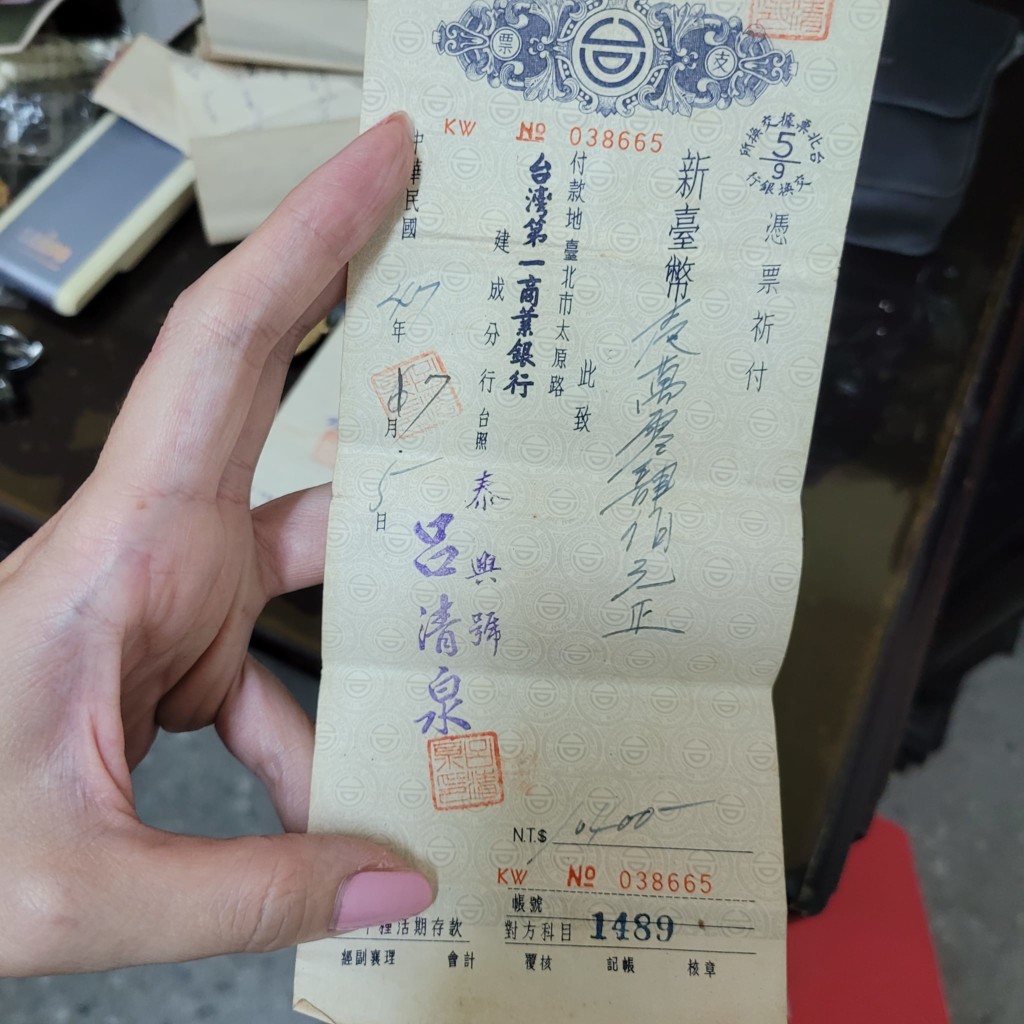 票 支
KW № 038665
台北票據交換所
5/9
交換銀行
憑票祈付
新臺幣壹萬零肆佰元正
此致
付款地臺北市太原路
台灣第一商業銀行
建成分行台照
泰興號
呂清泉
中華民國
年
月
5日
呂清泉印
N.T.$ 10400
KW № 038665
帳號
種活期存款
對方科目 1489
經副襄理 會計 覆核 記帳 核章